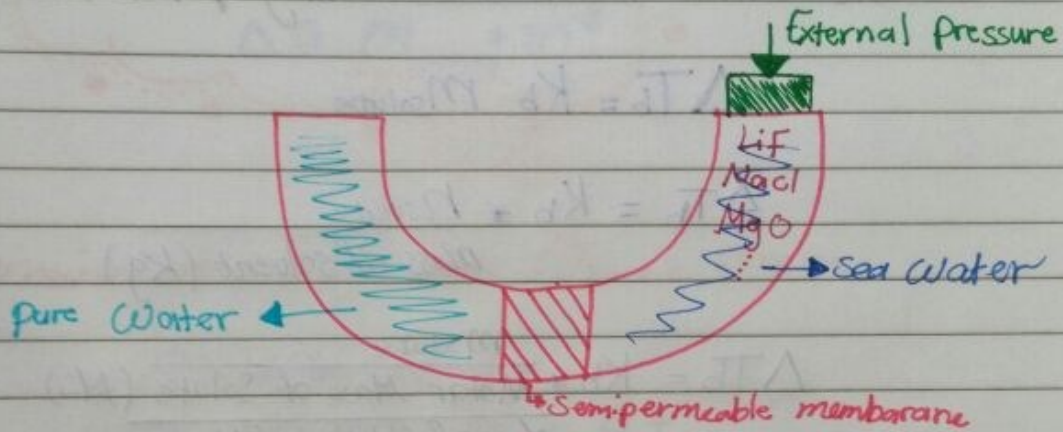 External Pressure
LiF
NaCl
MgO
Sea Water
Pure Water
Semipermeable membarane